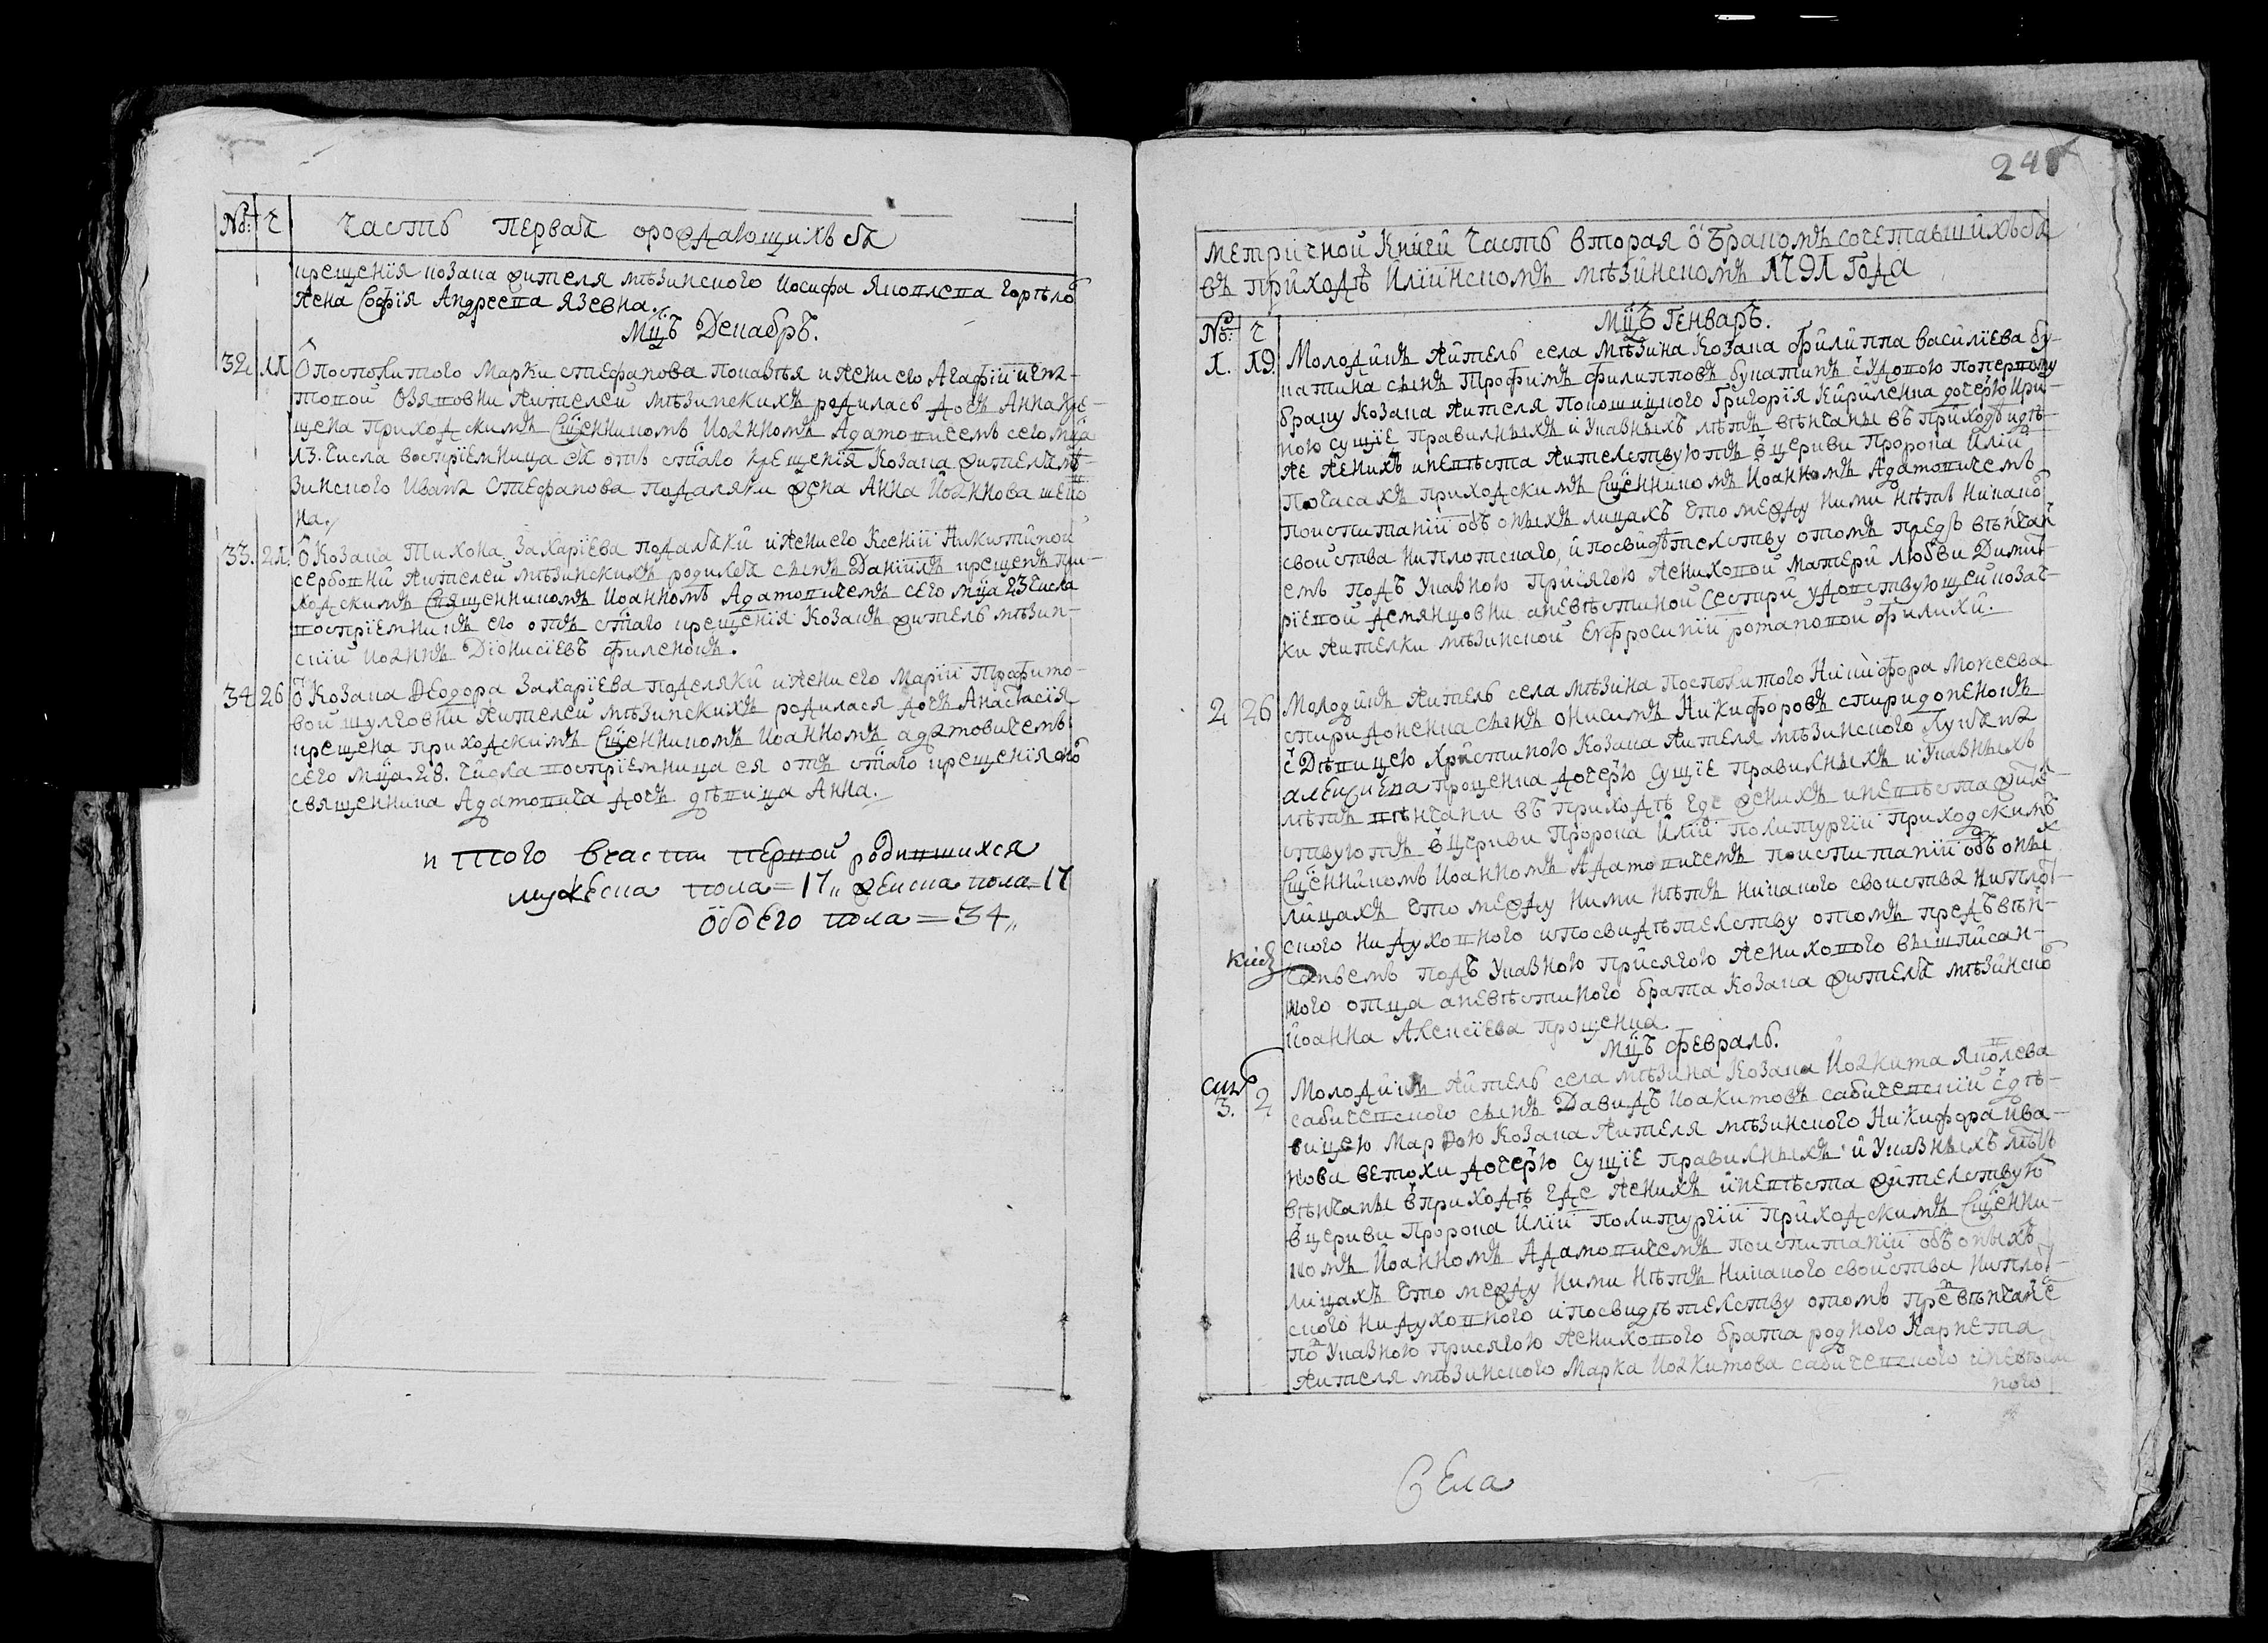 №: Ч Часть первая о рождающихъся
крещения козака жителя мѣзинского Иосифа Яковлева Горѣло
жена София Андреева Язевна.
Мцъ Декабръ.
32. 11 О посполитого Марки Стефанова и жени его Агафии
жителей мѣзинскихъ родилась дочь Анна кре-
щена приходскимъ Сщенникомъ Иоанномъ Адамовичемъ сего мца
13. числа восприемница ея отъ стаго крещения козака жителя мѣ-
зинского Ивана Стефанова Подаляки жена Анна Иоаннова
на.
33. 21. О козака Тихона Захариева Подаляки и жени его Ксении Никитиной
жителей мѣзинскихъ родился сынъ Даниилъ крещенъ при-
ходскимъ Священникомъ Иоанномъ Адамовичемъ сего мца 23 числа
восприемникъ его отъ стаго крещения козакъ житель мѣзин-
ский Иоаннъ Дионисиевъ Филенокъ.
34 26 О козака Феодора Захариева Подаляки и жени его Марии Трофимо-
вой Шулговни жителей мѣзинскихъ родилася дочь Анастасия
крещена приходскимъ Сщенникомъ Иоанномъ Адамовичемъ
сего мца 28. числа восприемница ея отъ стаго крещения
священника Адамовича дочь дѣвица Анна.
итого в части первой родившихся
мужеска пола = 17 „ женска пола = 17
обоего пола = 34 „
Метричной Книги Часть вторая о бракомъ сочетавшихъся
въ приходѣ Илиинскомъ мѣзинскомъ 1791 Года
№: Ч Мцъ Генваръ.
1. 19. Молодикъ житель села Мѣзина козака Филиппа Василиева Бу-
катина сынъ Трофимъ Филипповъ Букатинъ с удовою по первому
браку козака жителя Григория Кириленка дочерю Ири-
ною сущие правилныхъ и указныхъ лѣтъ вѣнчаны въ приходѣ идѣ-
же женихъ и невѣста жителствуютъ в церкви Пророка Илии
по часахъ приходскимъ Сщенникомъ Иоанномъ Адамовичемъ
по испитании объ оныхъ лицахъ что между ними нѣтъ никако
свойства ни плотскаго, и по свидѣтелству о томъ предъ вѣнчани
емъ подъ указною присягою жениховой матери Любви Димит-
риевой Демянцовни а невѣстиной сестри удовствующей козач-
ки жителки мѣзинской Евфросинии Романовой Филихи.
2 26 Молодикъ житель села Мѣзина посполитого Никифора Моисеева
Спиридоненка сынъ Онисимъ Никифоровъ Спиридоненокъ
с дѣвицею Христиною козака жителя мѣзинского Лукяна
Алексиева Прощенка дочерю сущие правилныхъ и указныхъ
лѣтъ вѣнчани въ приходѣ где женихъ и невѣста жител-
ствуютъ в церкви Пророка Илии по литургии приходскимъ
Сщенникомъ Иоанномъ Адамовичемъ по испитании объ оныхъ
лицахъ что между ними нѣтъ никакого свойства ни плот-
ского ни духовного и по свидѣтелству о томъ предъ вѣн-
чаниемъ подъ указною присягою женихового вышписан-
ного отца а невѣстиного брата козака жителя мѣзинско
Иоанна Алексиева Прощенка.
Мцъ Февраль.
3. 2 Молодикъ житель села Мѣзина козака Иоакима Яковлева
Сабичевского сынъ Давидъ Иоакимовъ Сабичевский с дѣ-
вицею Марфою козака жителя мѣзинского Никифора Ива-
нови Ветохи дочерю сущие правилныхъ и указныхъ лѣтъ
вѣнчаны в приходѣ где женихъ и невѣста жителствую
в церкви Пророка Илии по литургии приходскимъ Сщенни-
комъ Иоанномъ Адамовичемъ по испитании объ оныхъ
лицахъ что между ними нѣтъ никакого свойства ни плот-
ского ни духовного и по свидѣтелству о томъ пре вѣнчание
по указною присягою женихового брата родного
жителя мѣзинского Марка Иоакимова Сабичевского и невѣсти
ного